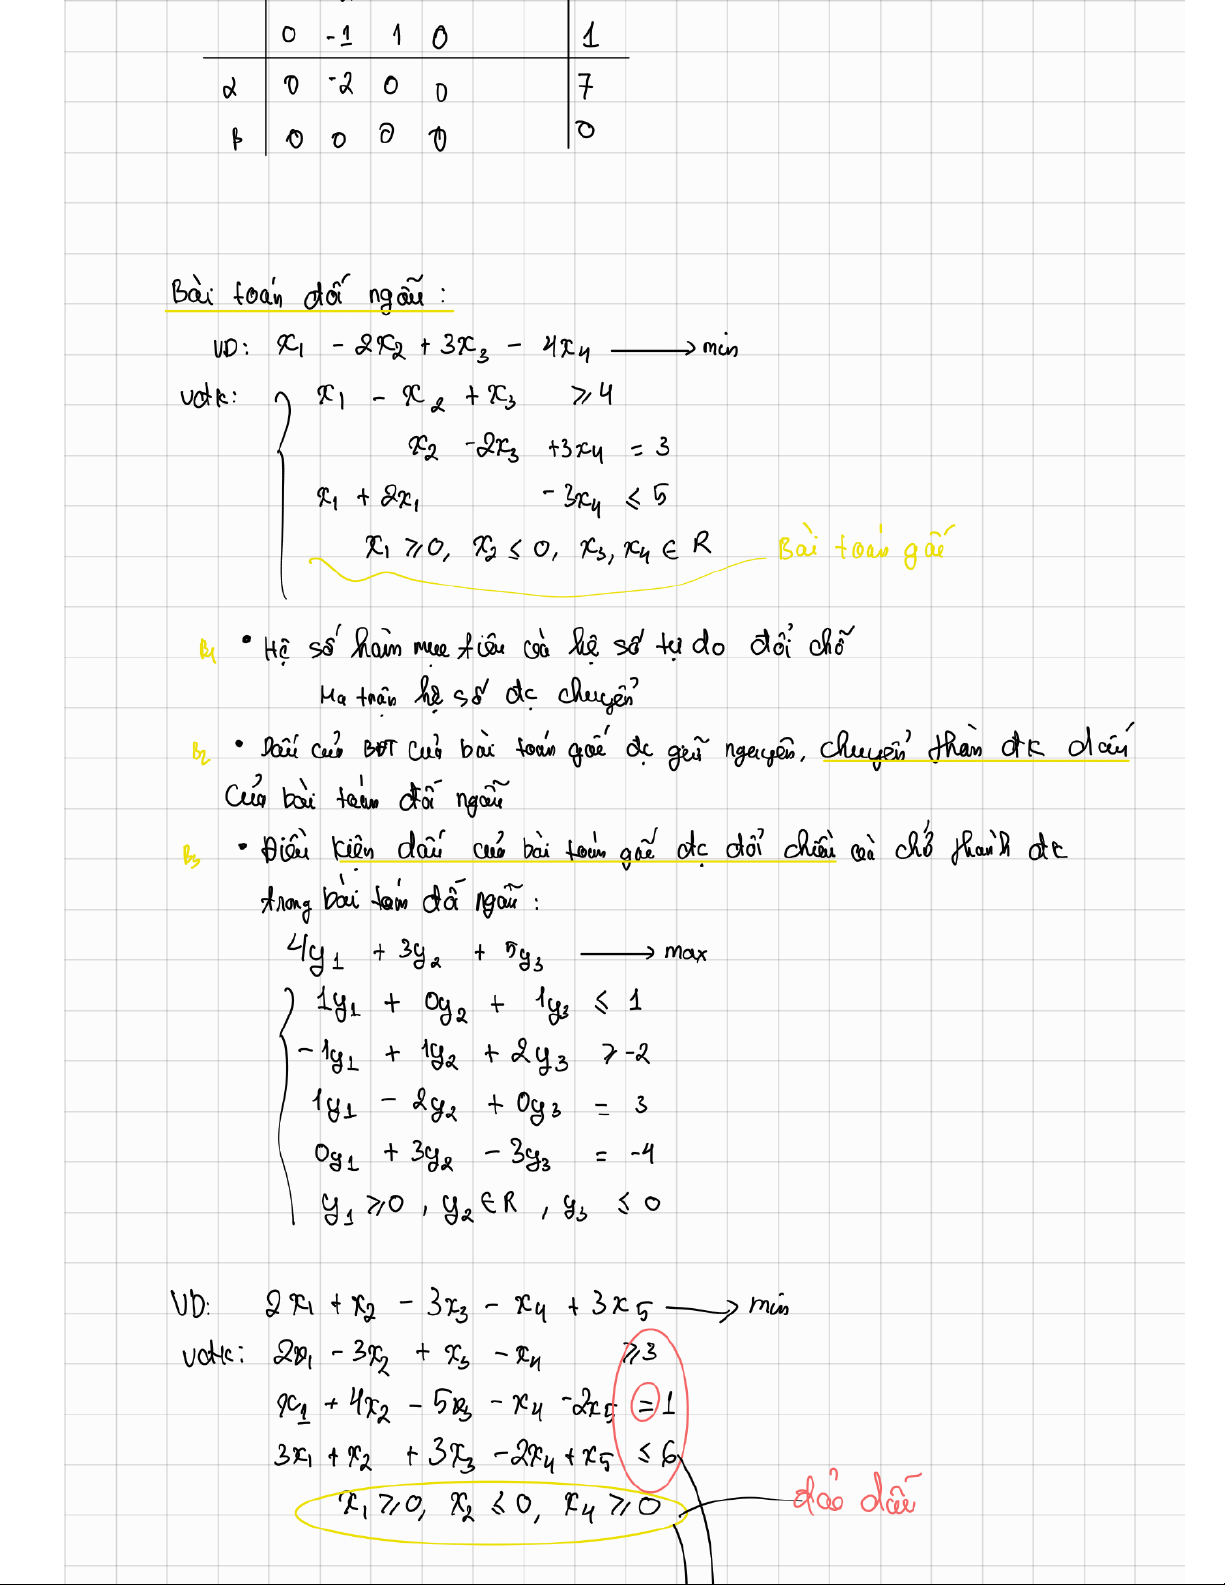 0 -1 1 0 1
α 0 -2 0 0 7
β 0 0 0 0 0
Bài toán đối ngẫu :
VD: x₁ - 2x₂ + 3x₃ - 4x₄ ⟶ min
vđk: x₁ - x₂ + x₃ ≥ 4
x₂ -2x₃ +3x₄ = 3
x₁ + 2x₁ -3x₄ ≤ 5
x₁ ≥ 0, x₂ ≤ 0, x₃, x₄ ∈ R Bài toán gốc
B₁ • Hệ số hàm mục tiêu và hệ số tự do đổi chỗ
Ma trận hệ số đc chuyển
B₂ • Dấu của BĐT của bài toán gốc đc giữ nguyên, chuyển thàn đk dấu
của bài toán đối ngẫu
B₃ • Điều kiện dấu của bài toán gốc đc đổi chiều và chở thành đk
trong bài toán đối ngẫu :
4y₁ + 3y₂ + 5y₃ ⟶ max
1y₁ + 0y₂ + 1y₃ ≤ 1
-1y₁ + 1y₂ + 2y₃ ≥ -2
1y₁ - 2y₂ + 0y₃ = 3
0y₁ + 3y₂ - 3y₃ = -4
y₁ ≥ 0 , y₂ ∈ R , y₃ ≤ 0
VD: 2x₁ + x₂ - 3x₃ - x₄ + 3x₅ ⟶ min
vđk: 2x₁ - 3x₂ + x₃ - x₄ ≥ 3
x₁ + 4x₂ - 5x₃ - x₄ -2x₅ = 1
3x₁ + x₂ + 3x₃ - 2x₄ + x₅ ≤ 6
x₁ ≥ 0, x₂ ≤ 0, x₄ ≥ 0 đảo dấu